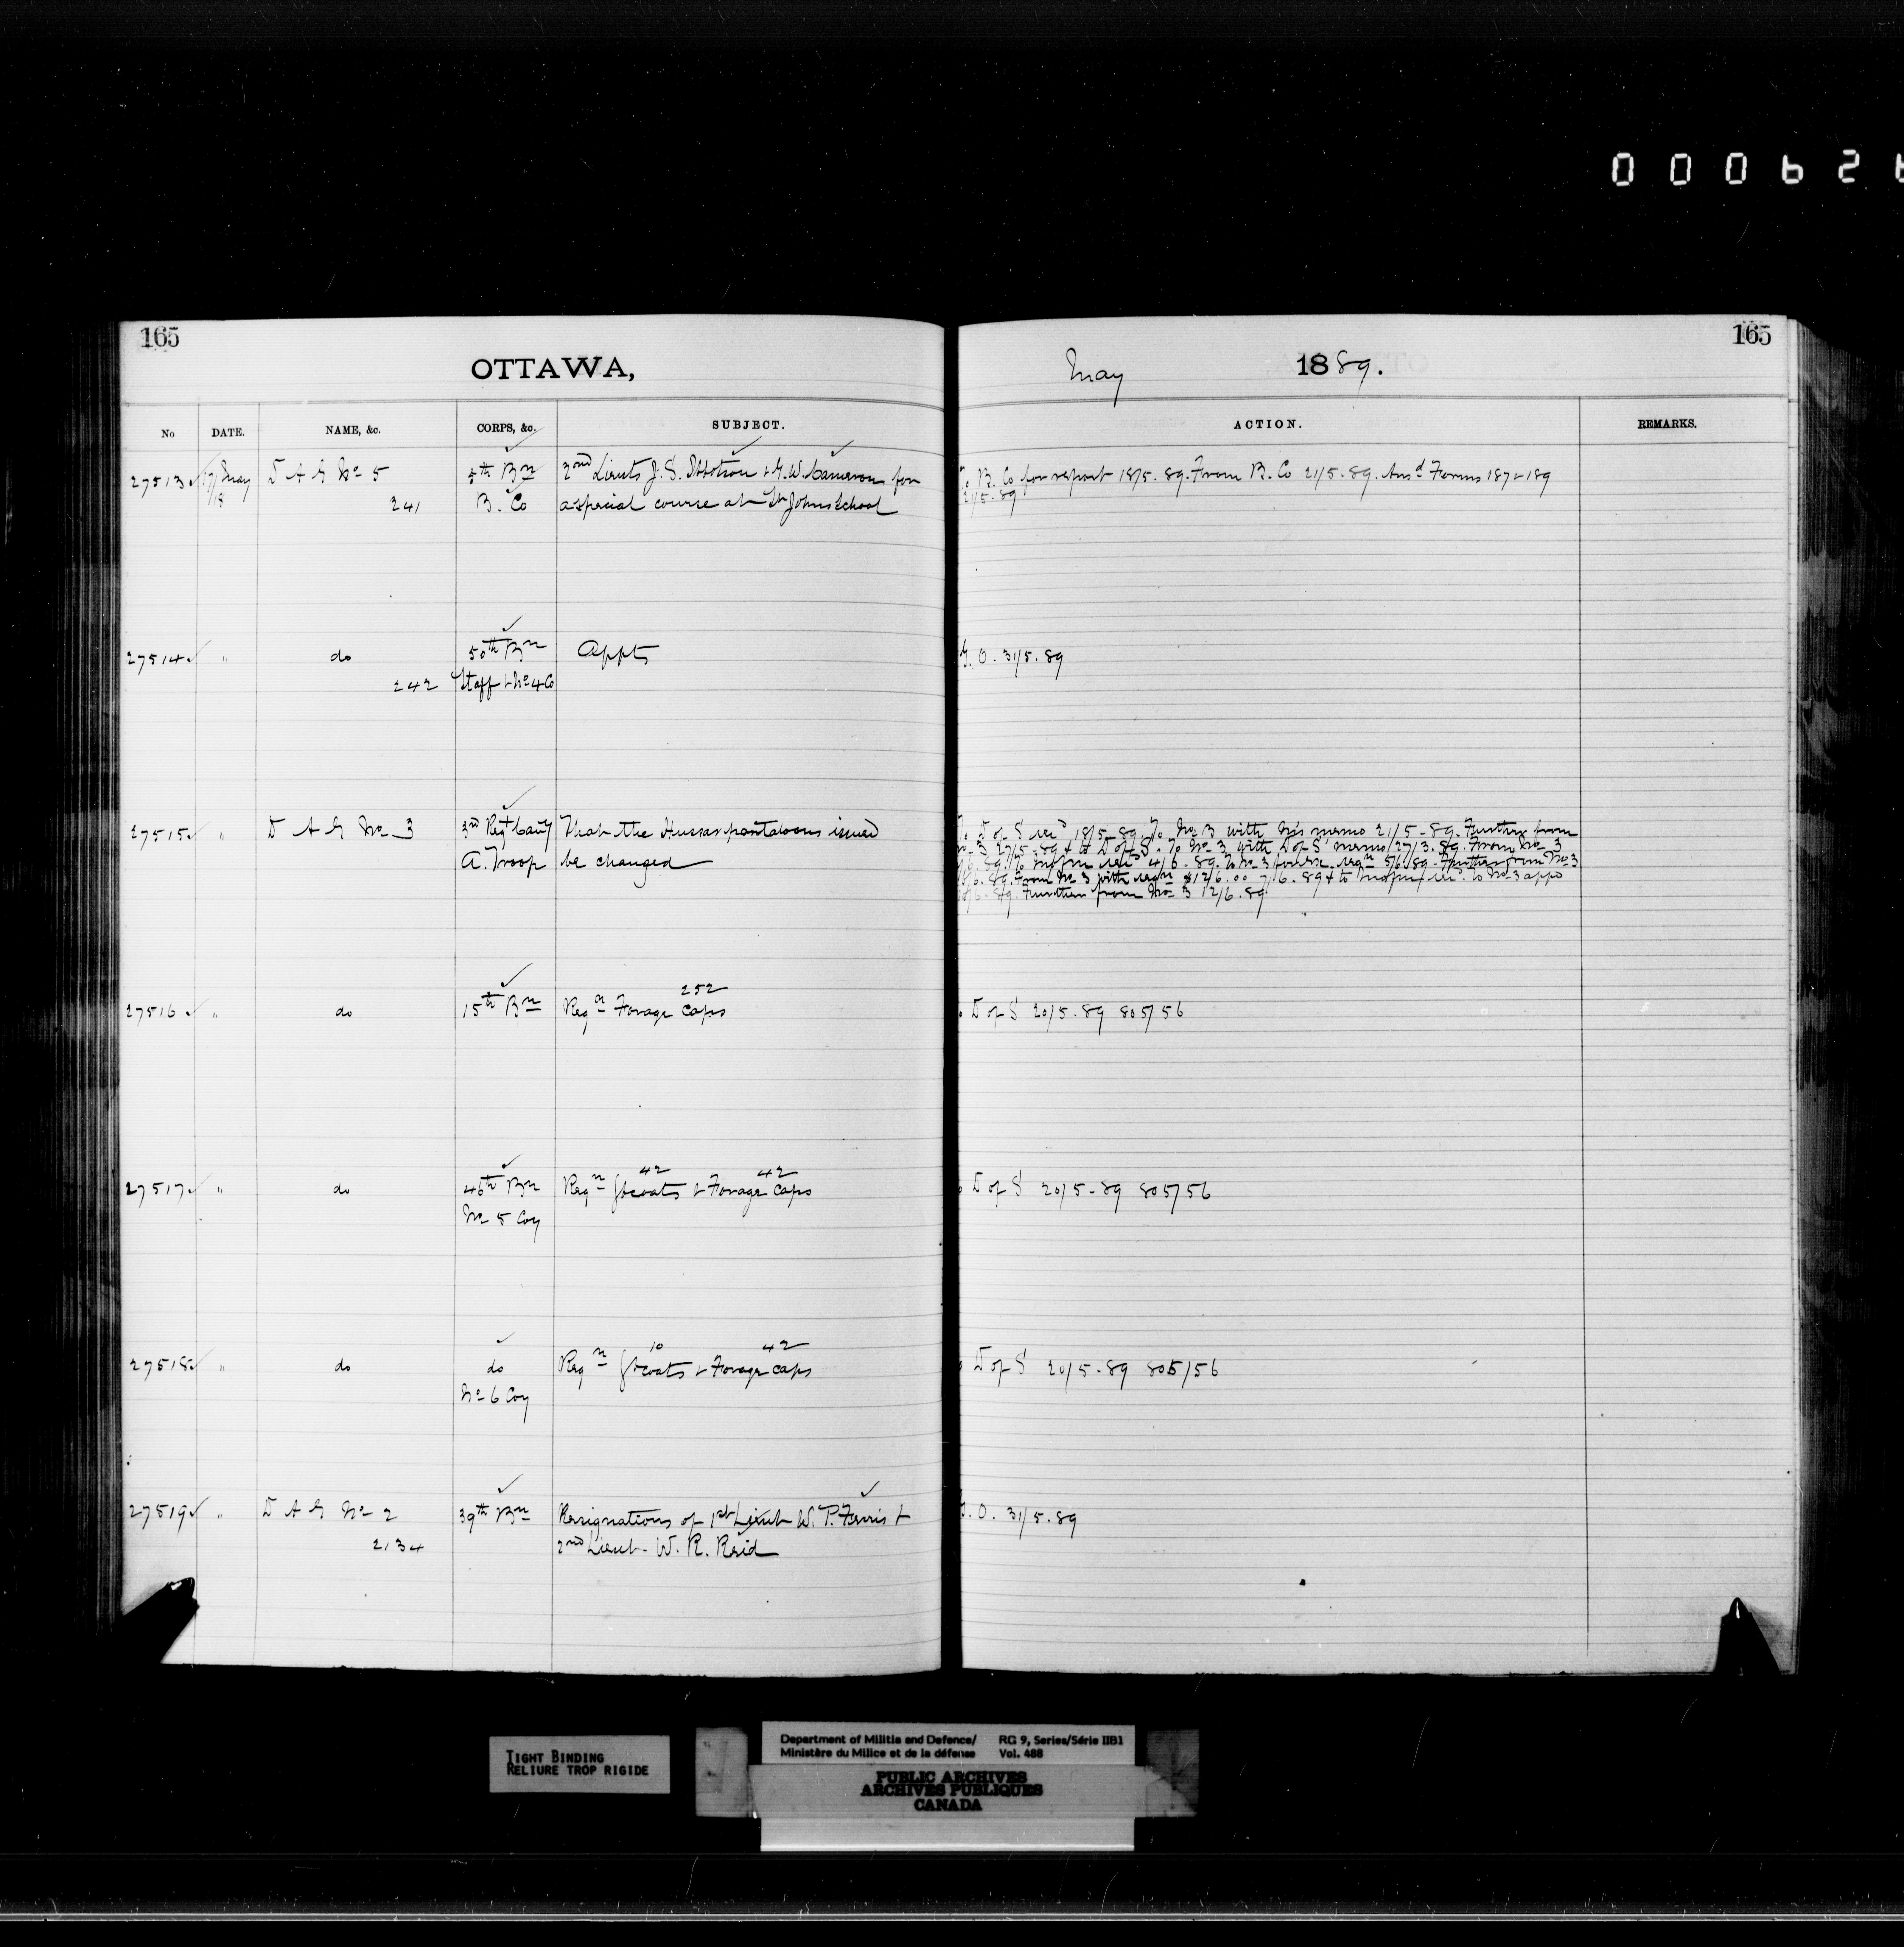 000626
165
OTTAWA,
No DATE. NAME, &c. CORPS, &c. SUBJECT.
27513 17/May D A G No 5 5th Bn 2nd Lieuts J. S. Ibbotson & G. W. Cameron for
18 241 B. Co a special course at St Johns School
27514 " do 50th Bn Appts
242 Staff & No 4 Co
27515 " D A G No 3 3rd Regt Cavy That the Hussar pantaloons issued
A. Troop be changed
252
27516 " do 15th Bn Reqn Forage Caps
42 42
27517 " do 46th Bn Reqn Gtcoats & Forage caps
No 5 Coy
10 42
27518 " do do Reqn Gtcoats & Forage caps
No 6 Coy
27519 " D A G No 2 39th Bn Resignations of 1st Lieut W. P. Ferris &
2134 2nd Lieut. W. R. Reid
165
May 1889.
ACTION. REMARKS.
B. Co for report 18/5.89. From B. Co 21/5.89. Ansd Forms 187 & 189
21/5.89
G. O. 31/5.89
D of S 18/5.89. To No 3 with his memo 21/5.89. Further from
No 3 27/5.89 & to D of S. To No 3 with D of S memo 27/3.89. From No 3
4/6.89. To No 3 for reqn 5/6.89. Further from No 3
From No 3 with reqn $126.00 7/6.89 & to
Further from No 3 12/6.89
D of S 20/5.89 805/56
D of S 20/5.89 805/56
D of S 20/5.89 805/56
G. O. 31/5.89
TIGHT BINDING
RELIURE TROP RIGIDE
Department of Militia and Defence/ RG 9, Series/Série IIB1
Ministère du Milice et de la défense Vol. 488
PUBLIC ARCHIVES
ARCHIVES PUBLIQUES
CANADA